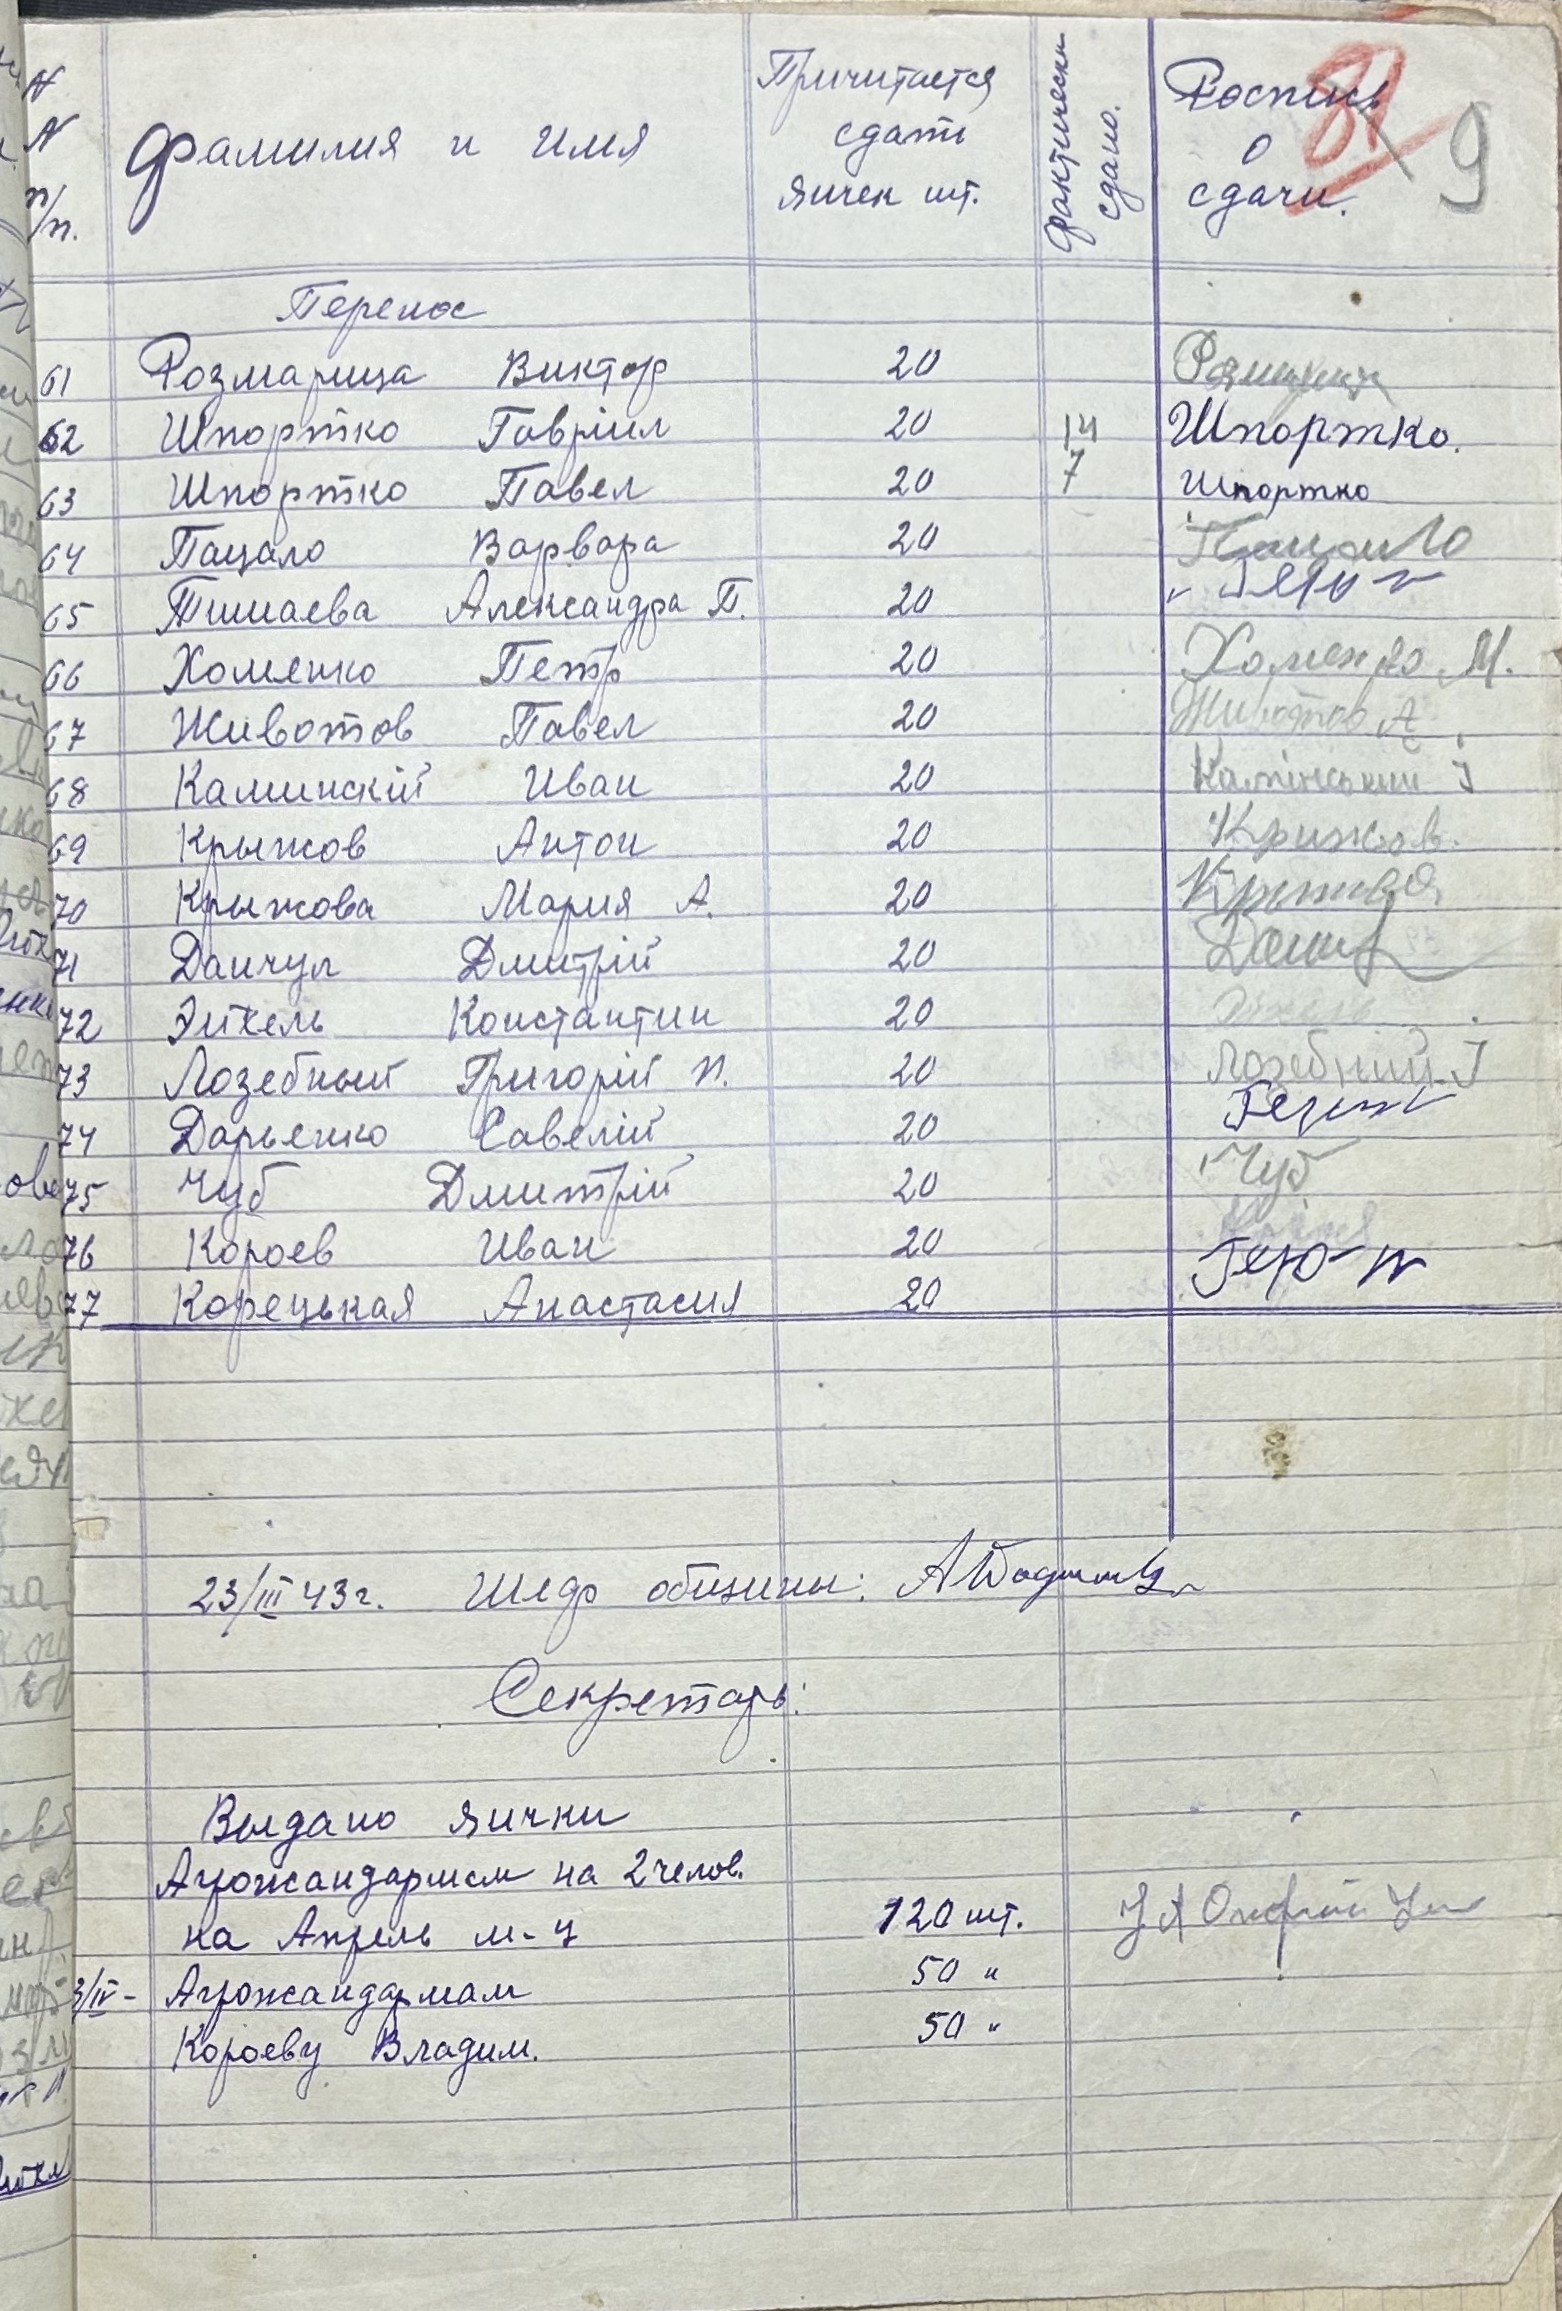 N N п/п. Фамилия и Имя Причитается сдать яичек шт. Фактически сдано. Роспись о сдачи. 81 9
Перенос
61 Розмарица Виктор 20
62 Шпортко Гавріил 20 14 Шпортко.
63 Шпортко Павел 20 7 Шпортко
64 Пацало Варвара 20 Пацало
65 Тишаева Александра П. 20
66 Хоменко Петр 20 Хоменко М.
67 Животов Павел 20 Животов А
68 Каминскій Иван 20 Камінський І
69 Крыжов Антон 20 Крижов.
70 Крыжова Мария А. 20
71 Данчул Дмитрій 20
72 Эйхель Константин 20
73 Лозебный Григорій п. 20 Лозебний І
74 Дарьенко Савелій 20
75 Чуб Дмитрій 20 Чуб
76 Короев Иван 20
77 Корецькая Анастасия 20
23/III 43 г. Шеф общины:
Секретарь:
Выдано яички
Агрожандармам на 2 челов.
на Апрель м-ц 120 шт.
3/IV- Агрожандармам 50 "
Короеву Владим. 50 "